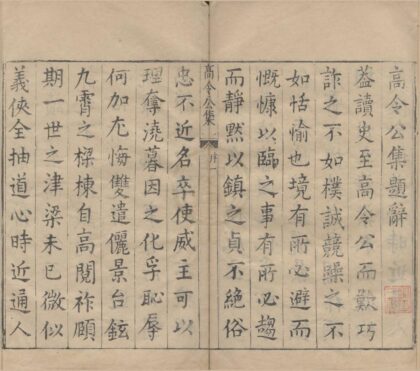 高令公集題辭
蓋讀史至高令公而歎巧
詐之不如樸誠競躁之不
如恬愉也境有所必避而
慨慷以臨之事有所必趨
而靜默以鎮之貞不絕俗
高令公集
忠不近名卒使威主可以
理奪澆暮因之化孚恥辱
何加尤悔雙遣儷景台鉉
九霄之樑棟自高閱祚頤
期一世之津梁未已微似
義俠全抽道心時近通人